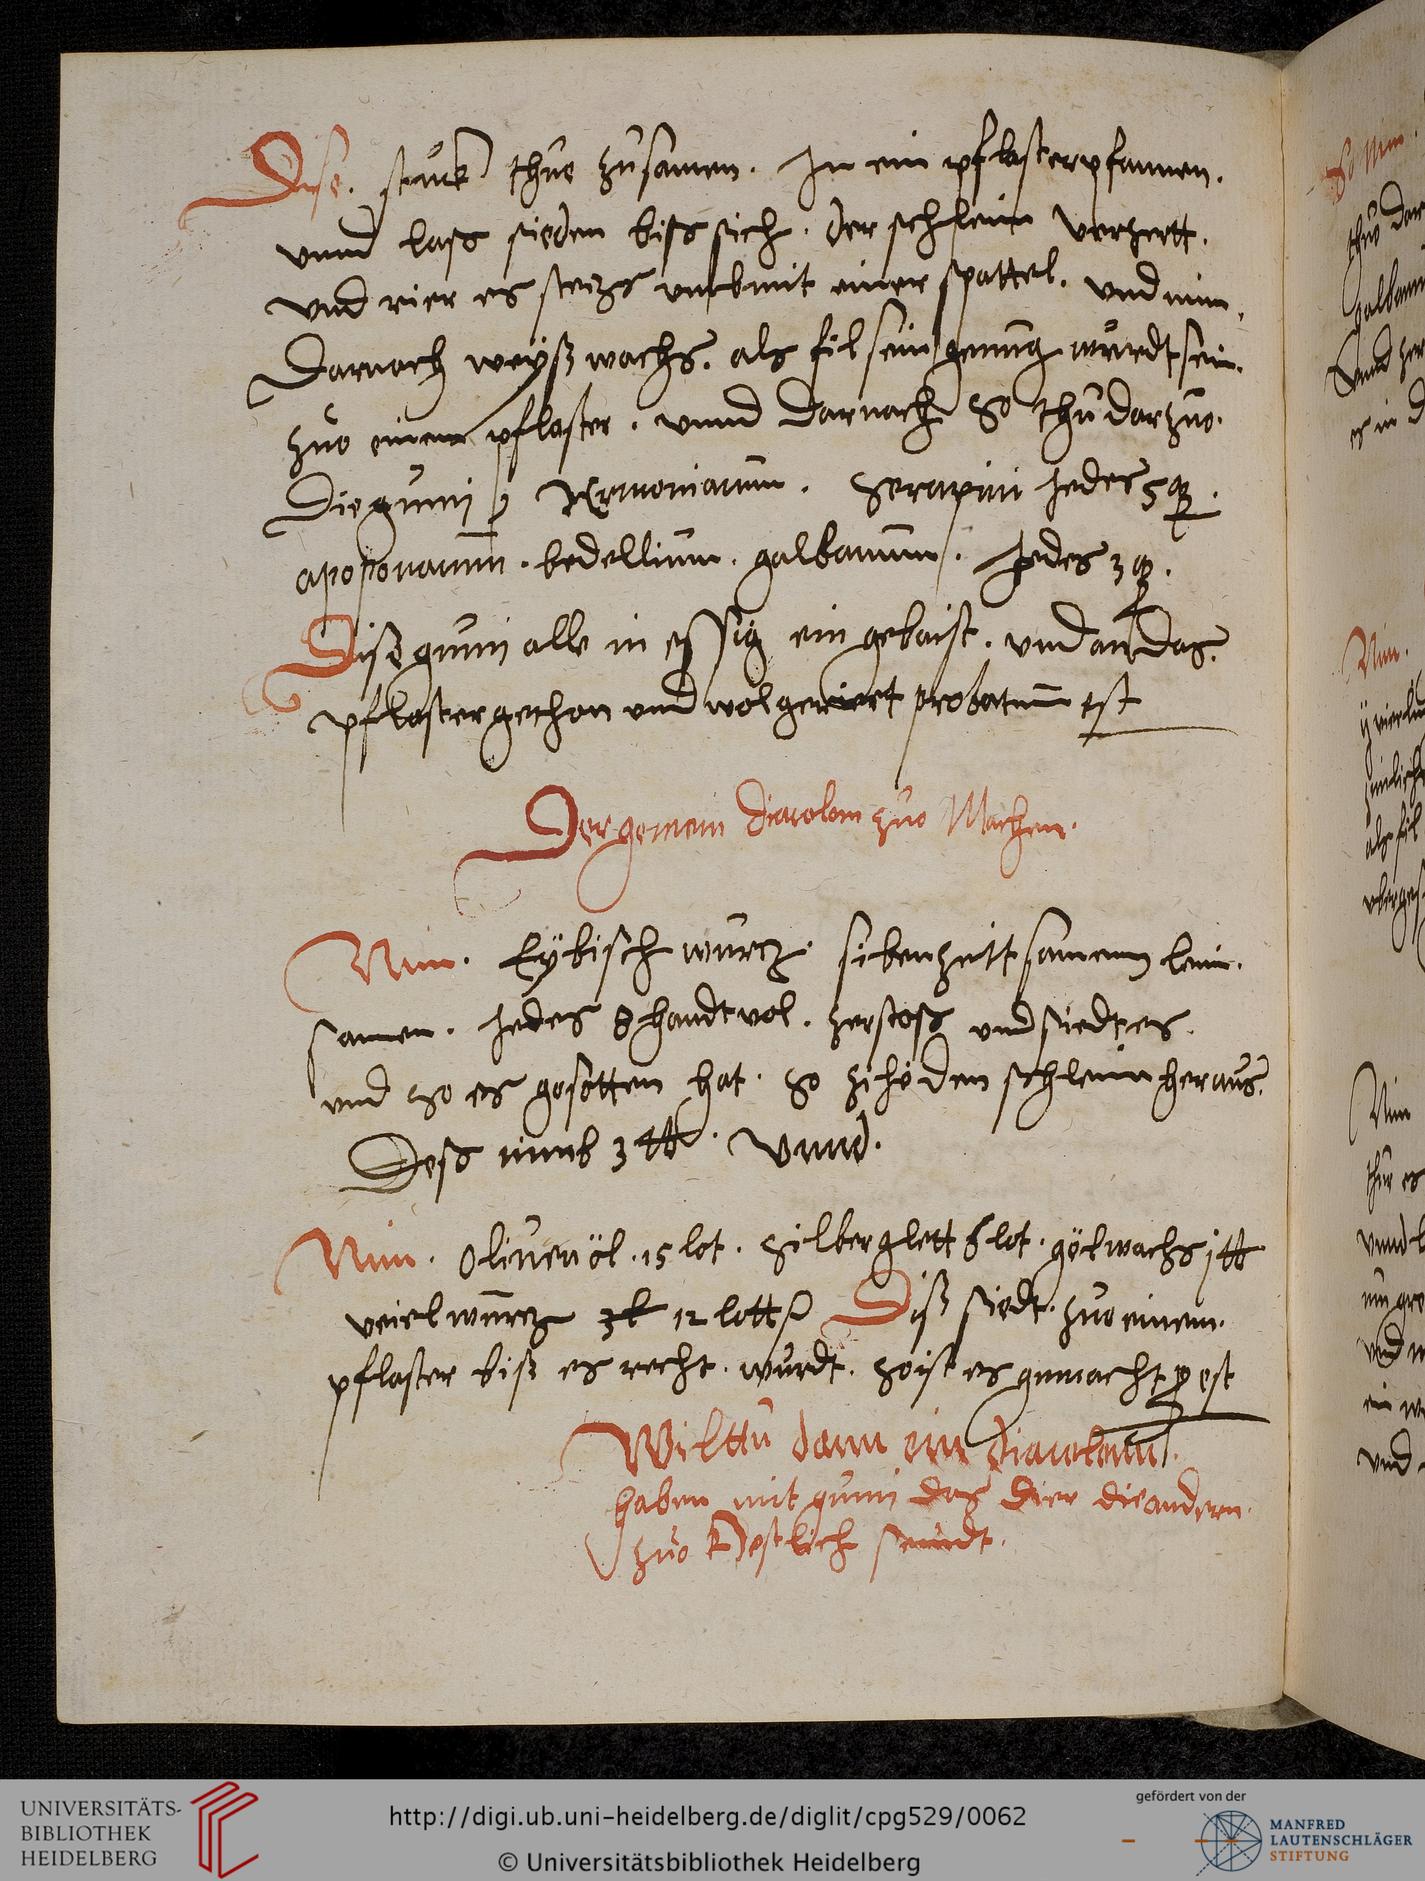 Dise. stuck thue zusamen. In ein pflasterpfannen.
vnnd lass sieden biss sich. der schleim verzertt.
vnd rier es stetzs vmb mit einer spattel. vnd nim.
Darnach weyß wachs. als fil sein genung wurdt sein.
zuo einem pflaster. vnnd darnach so thu darzuo.
Die gumi Armoniacum. Serapini Jedes 5
apoponacum. bedellium. galbanum. Jedes 3
Dise gumi alle in essig ein gebaist. vnd an das.
pflaster gethon vnd wol geriert probatum est
Der gemein diacolom zuo Machen.
Nim. Eybisch wurtz. sibenzeitt samenn lein.
samen. Jedes 8 handt vol. zerstoss vnd siedt es.
vnd so es gesotten hat. so zihe den schleim heraus.
Dess nimb 3 lb. Vnnd.
Nim. Oliuen öl. 15 lot. silberglett 6 lot. gölwachs 1 lb
veielwurtz 12 lott Diß siedt. zuo einem.
pflaster biß es recht. wurdt. so ist es gemacht p est
Wilttu dann ein diacolom.
haben mit gumi das Dier die andern.
zuo kostlich seindt.
So Nim
thuo dar
galbanum
Vnnd her
es in d
Nim.
als fil
Nim
thue es
vnnd
vnd
ein
vnd
UNIVERSITÄTS-
BIBLIOTHEK
HEIDELBERG
http://digi.ub.uni-heidelberg.de/diglit/cpg529/0062
© Universitätsbibliothek Heidelberg
gefördert von der
MANFRED
LAUTENSCHLÄGER
STIFTUNG